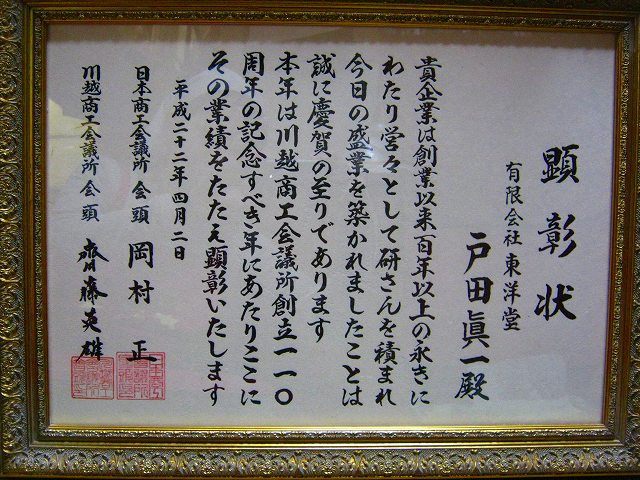 顕彰状
有限会社 東洋堂
戸田眞一殿
貴企業は創業以来百年以上の永きに
わたり営々として研さんを積まれ
今日の盛業を築かれましたことは
誠に慶賀の至りであります
本年は川越商工会議所創立一一〇
周年の記念すべき年にあたりここに
その業績をたたえ顕彰いたします
平成二十二年四月二日
日本商工会議所 会頭 岡村 正
川越商工会議所 会頭 齋藤英雄